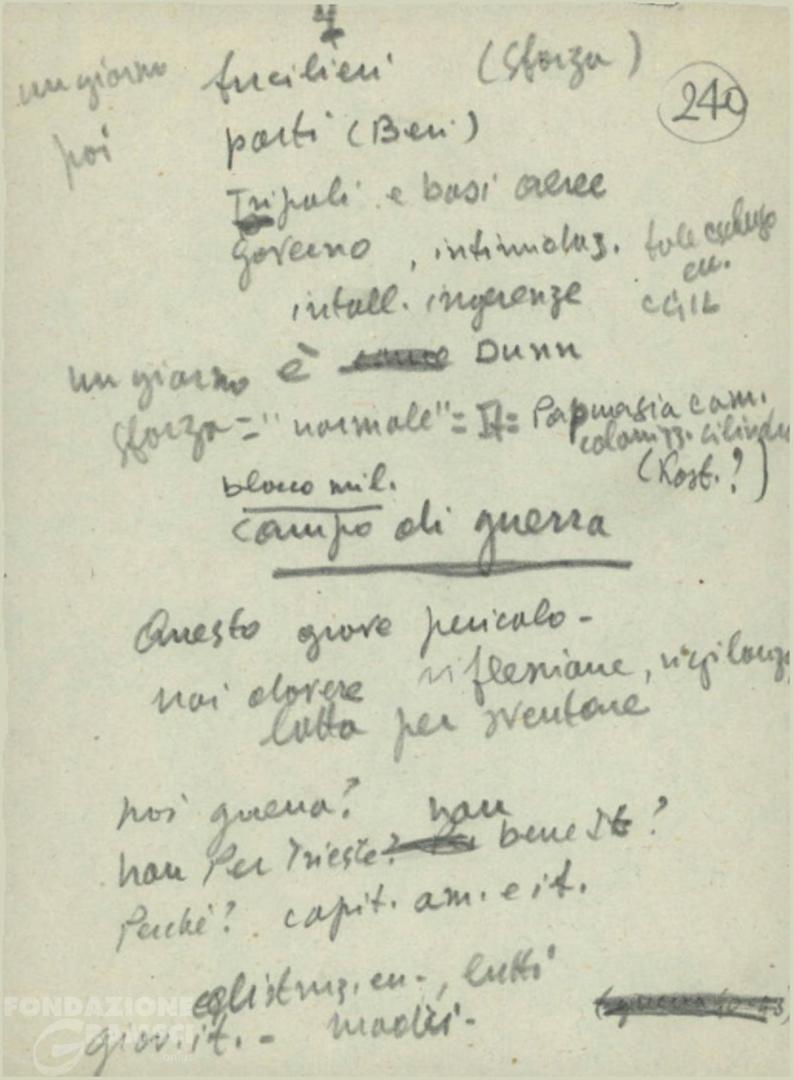 4
un giorno fucilieri (Sforza)
240
poi porti (Beri)
Tripoli e basi aeree
Governo, intimidaz. tale
intoll. ingerenze CGIL
un giorno è Dunn
Sforza = "normale" = It =
(Kost.?)
blocco mil.
campo di guerra
Questo grave pericolo -
noi dovere riflessione, vigilanza
lotta per sventare
poi guerra? non
non Per Trieste? bene It?
Perché? capit. am. e it.
lutti
giov. it. - madri -
FONDAZIONE
GRAMSCI
onlus